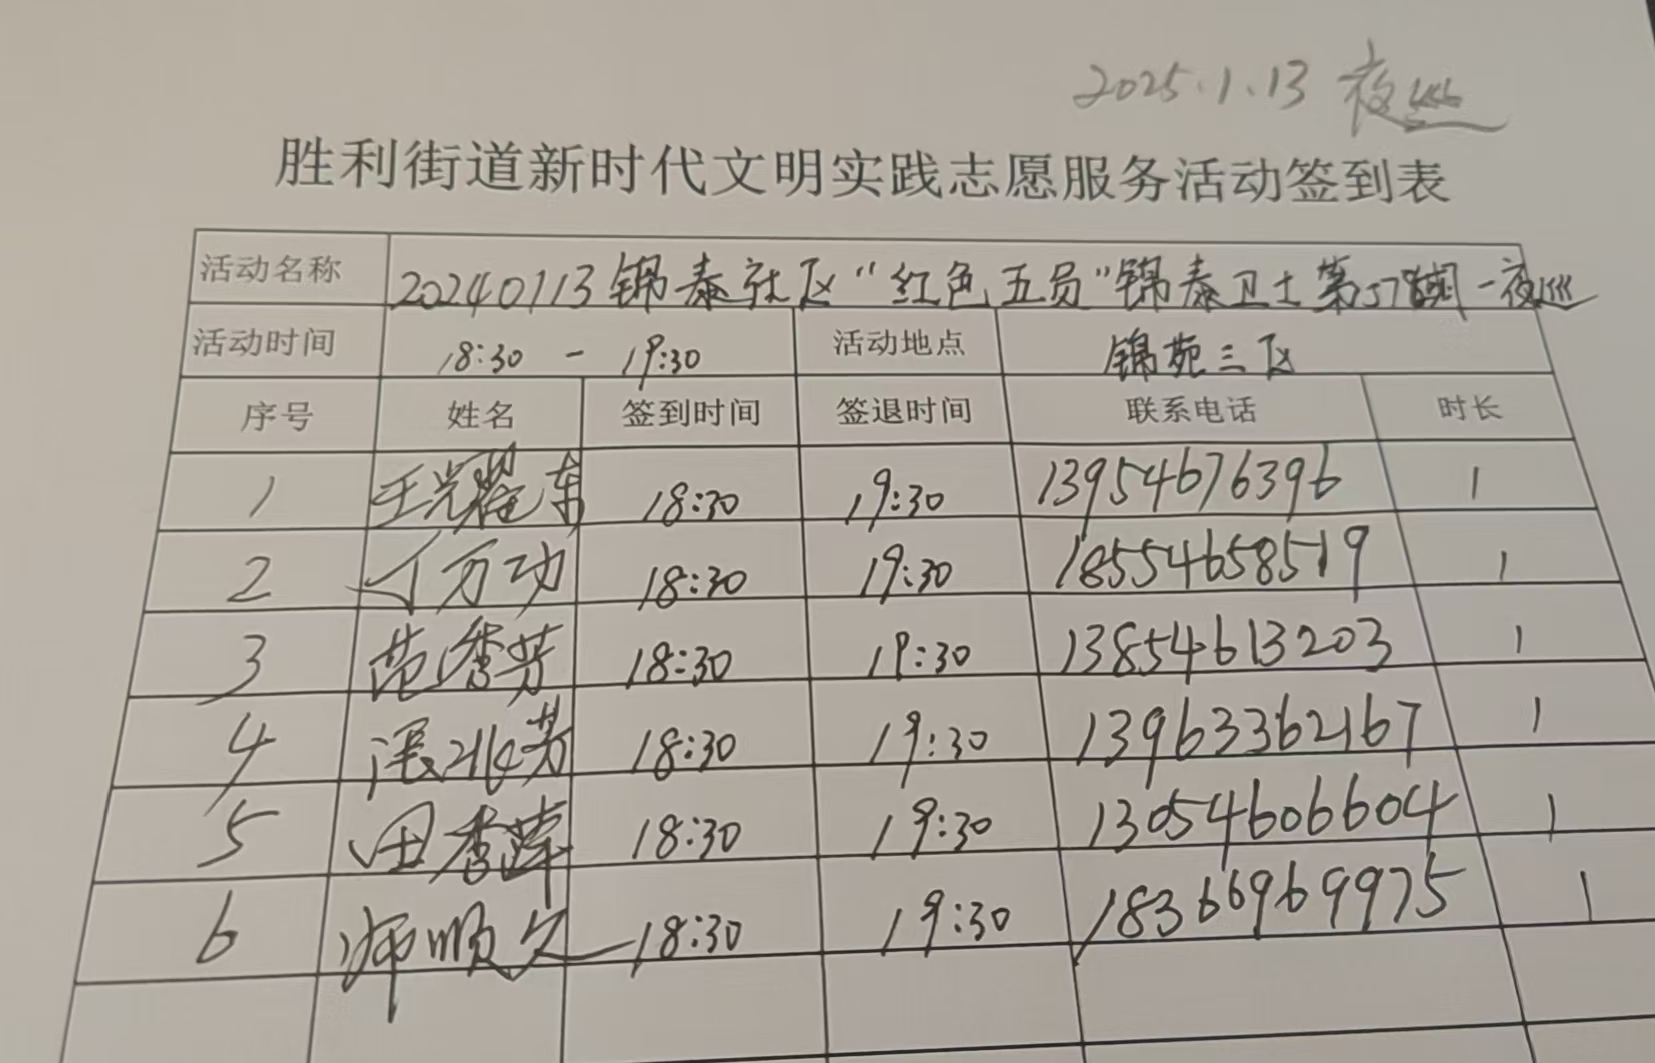 2025.1.13 夜巡
胜利街道新时代文明实践志愿服务活动签到表
活动名称 20240113锦泰社区“红色五员”锦泰卫士第578期-夜巡
活动时间 18:30 - 19:30 活动地点 锦苑三区
序号 姓名 签到时间 签退时间 联系电话 时长
1 王光耀东 18:30 19:30 13954676396 1
2 丁万功 18:30 19:30 18554658519 1
3 范秀芳 18:30 19:30 13854613203 1
4 18:30 19:30 13963362167 1
5 田秀萍 18:30 19:30 13054606604 1
6 师顺久 18:30 19:30 18366969975 1